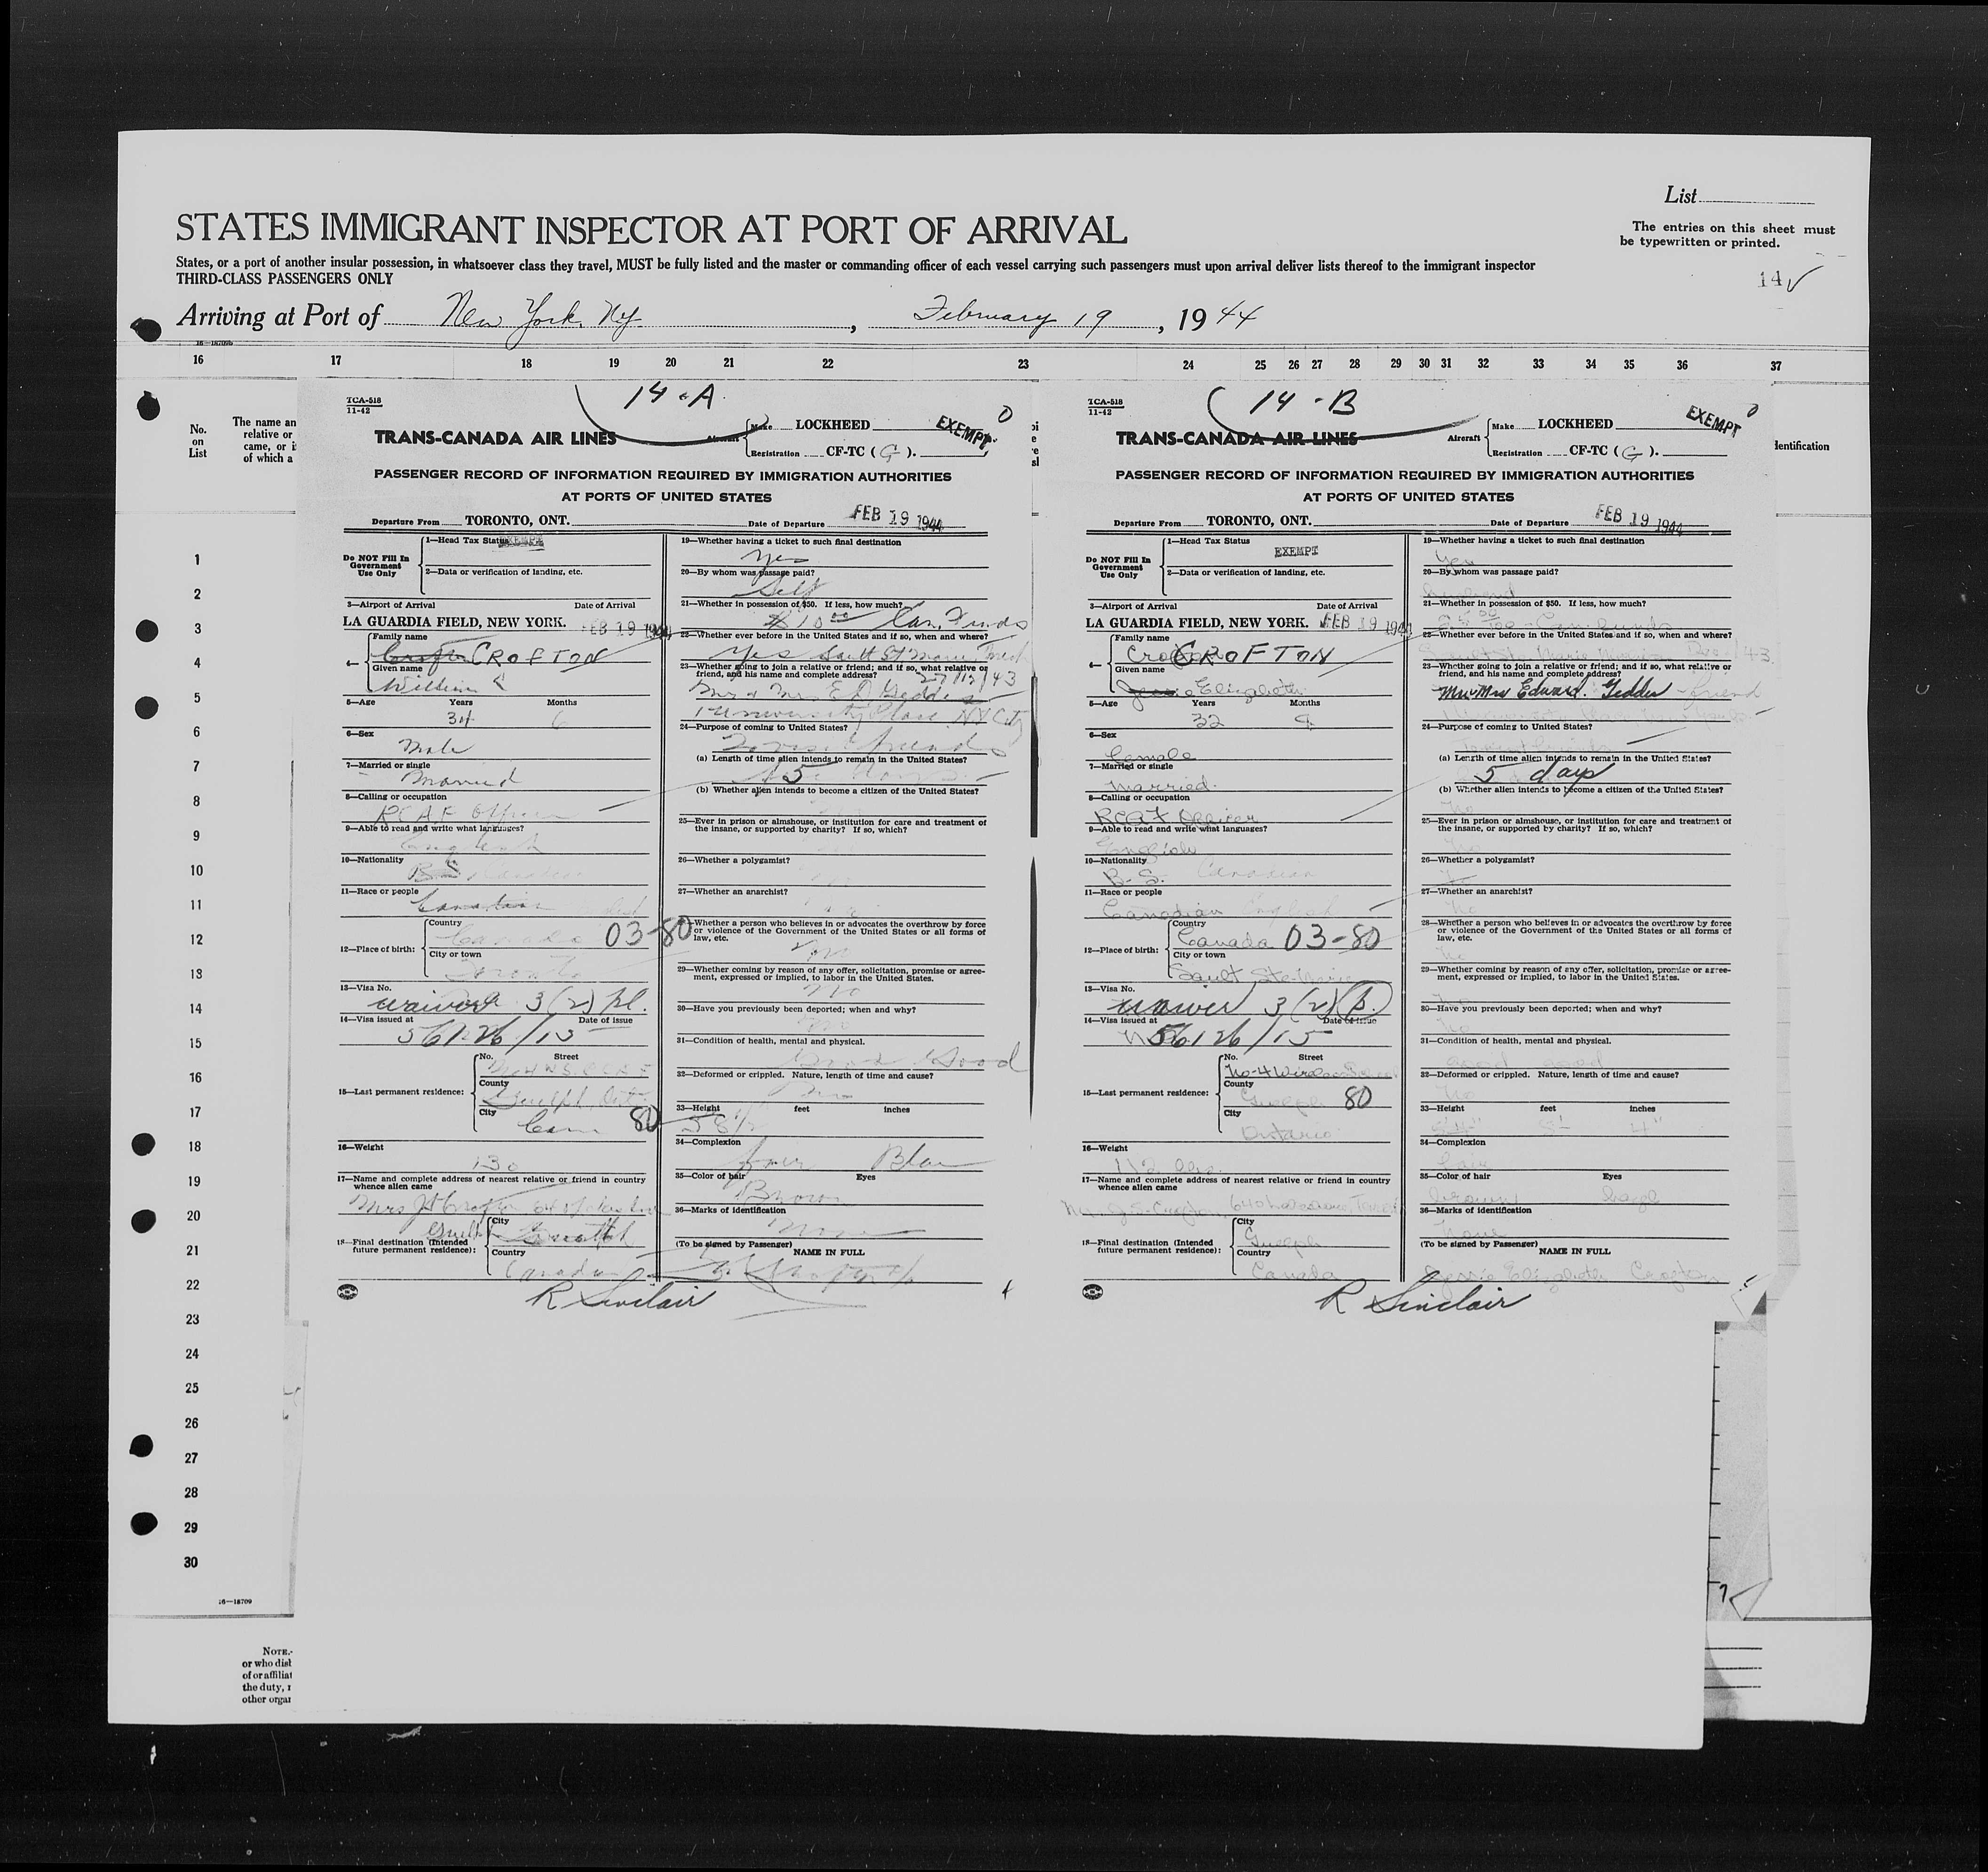 List
STATES IMMIGRANT INSPECTOR AT PORT OF ARRIVAL
The entries on this sheet must
be typewritten or printed.
States, or a port of another insular possession, in whatsoever class they travel, MUST be fully listed and the master or commanding officer of each vessel carrying such passengers must upon arrival deliver lists thereof to the immigrant inspector
THIRD-CLASS PASSENGERS ONLY
14
Arriving at Port of New York, Ny. , February 19 , 1944
16 17 18 19 20 21 22 23 24 25 26 27 28 29 30 31 32 33 34 35 36 37
No.
on
List
The name an
relative or
came, or i
of which a
dentification
1
2
3
4
5
6
7
8
9
10
11
12
13
14
15
16
17
18
19
20
21
22
23
24
25
26
27
28
29
30
16—18709
NOTE.-
or who disl
of or affiliat
the duty, r
other organ
14-A
TCA-518
11-42
TRANS-CANADA AIR LINES
Aircraft
Make LOCKHEED
Registration CF-TC (G).
EXEMPT
PASSENGER RECORD OF INFORMATION REQUIRED BY IMMIGRATION AUTHORITIES
AT PORTS OF UNITED STATES
Departure From TORONTO, ONT. Date of Departure FEB 19 1944
Do NOT Fill In
Government
Use Only
1—Head Tax Status EXEMPT
2—Data or verification of landing, etc.
3—Airport of Arrival Date of Arrival
LA GUARDIA FIELD, NEW YORK. FEB 19 1944
4— Family name
CROFTON
Given name
William
5—Age Years Months
34 6
6—Sex
Male
7—Married or single
Married
8—Calling or occupation
RCAF Officer
9—Able to read and write what languages?
English
10—Nationality
B.S. Canadian
11—Race or people
Canadian
12—Place of birth: Country
Canada 03-80
City or town
Toronto
13—Visa No.
waiver 3(2) pl.
14—Visa issued at Date of issue
56126/15
15—Last permanent residence: No. Street
County
Guelph, Ont.
City
80
16—Weight
130
17—Name and complete address of nearest relative or friend in country
whence alien came
18—Final destination (Intended
future permanent residence): City
Guelph
Country
Canada
R Sinclair
19—Whether having a ticket to such final destination
Yes
20—By whom was passage paid?
Self
21—Whether in possession of $50. If less, how much?
$10.00 Can. Funds
22—Whether ever before in the United States and if so, when and where?
Yes Sault St Marie
23—Whether going to join a relative or friend; and if so, what relative or
friend, and his name and complete address? 27/12/43
Mr & Mrs E D Geddes
1 University Place NY City
24—Purpose of coming to United States?
To visit friends
(a) Length of time alien intends to remain in the United States?
5
(b) Whether alien intends to become a citizen of the United States?
25—Ever in prison or almshouse, or institution for care and treatment of
the insane, or supported by charity? If so, which?
26—Whether a polygamist?
27—Whether an anarchist?
Whether a person who believes in or advocates the overthrow by force
or violence of the Government of the United States or all forms of
law, etc.
no
29—Whether coming by reason of any offer, solicitation, promise or agree-
ment, expressed or implied, to labor in the United States.
no
30—Have you previously been deported; when and why?
no
31—Condition of health, mental and physical.
Good Good
32—Deformed or crippled. Nature, length of time and cause?
no
33—Height feet inches
5 8½
34—Complexion
35—Color of hair Eyes
Brown
36—Marks of identification
(To be signed by Passenger) NAME IN FULL
14-B
TCA-518
11-42
TRANS-CANADA AIR LINES
Aircraft
Make LOCKHEED
Registration CF-TC (G).
EXEMPT
PASSENGER RECORD OF INFORMATION REQUIRED BY IMMIGRATION AUTHORITIES
AT PORTS OF UNITED STATES
Departure From TORONTO, ONT. Date of Departure FEB 19 1944
Do NOT Fill In
Government
Use Only
1—Head Tax Status
EXEMPT
2—Data or verification of landing, etc.
3—Airport of Arrival Date of Arrival
LA GUARDIA FIELD, NEW YORK. FEB 19 1944
4— Family name
CROFTON
Given name
Jessie Elizabeth
5—Age Years Months
32 4
6—Sex
Female
7—Married or single
Married.
8—Calling or occupation
RCAF Officer
9—Able to read and write what languages?
English
10—Nationality
B.S. Canadian
11—Race or people
Canadian English
12—Place of birth: Country
Canada 03-80
City or town
Sault Ste-Marie
13—Visa No.
waiver 3(2)(b.)
14—Visa issued at Date of issue
56126/15
15—Last permanent residence: No. Street
No-4 Wireless School
County
Guelph 80
City
Ontario
16—Weight
112 lbs.
17—Name and complete address of nearest relative or friend in country
whence alien came
18—Final destination (Intended
future permanent residence): City
Guelph
Country
Canada
R Sinclair
19—Whether having a ticket to such final destination
Yes
20—By whom was passage paid?
husband
21—Whether in possession of $50. If less, how much?
22—Whether ever before in the United States and if so, when and where?
Sault Ste. Marie Dec/43
23—Whether going to join a relative or friend; and if so, what relative or
friend, and his name and complete address?
Mr & Mrs Edward. Geddes friend
24—Purpose of coming to United States?
(a) Length of time alien intends to remain in the United States?
5 days
(b) Whether alien intends to become a citizen of the United States?
No
25—Ever in prison or almshouse, or institution for care and treatment of
the insane, or supported by charity? If so, which?
No
26—Whether a polygamist?
No
27—Whether an anarchist?
No
28—Whether a person who believes in or advocates the overthrow by force
or violence of the Government of the United States or all forms of
law, etc.
No
29—Whether coming by reason of any offer, solicitation, promise or agree-
ment, expressed or implied, to labor in the United States.
No
30—Have you previously been deported; when and why?
No
31—Condition of health, mental and physical.
good good
32—Deformed or crippled. Nature, length of time and cause?
No
33—Height feet inches
5' 4"
34—Complexion
fair
35—Color of hair Eyes
brown hazel
36—Marks of identification
None
(To be signed by Passenger) NAME IN FULL
Jessie Elizabeth Crofton